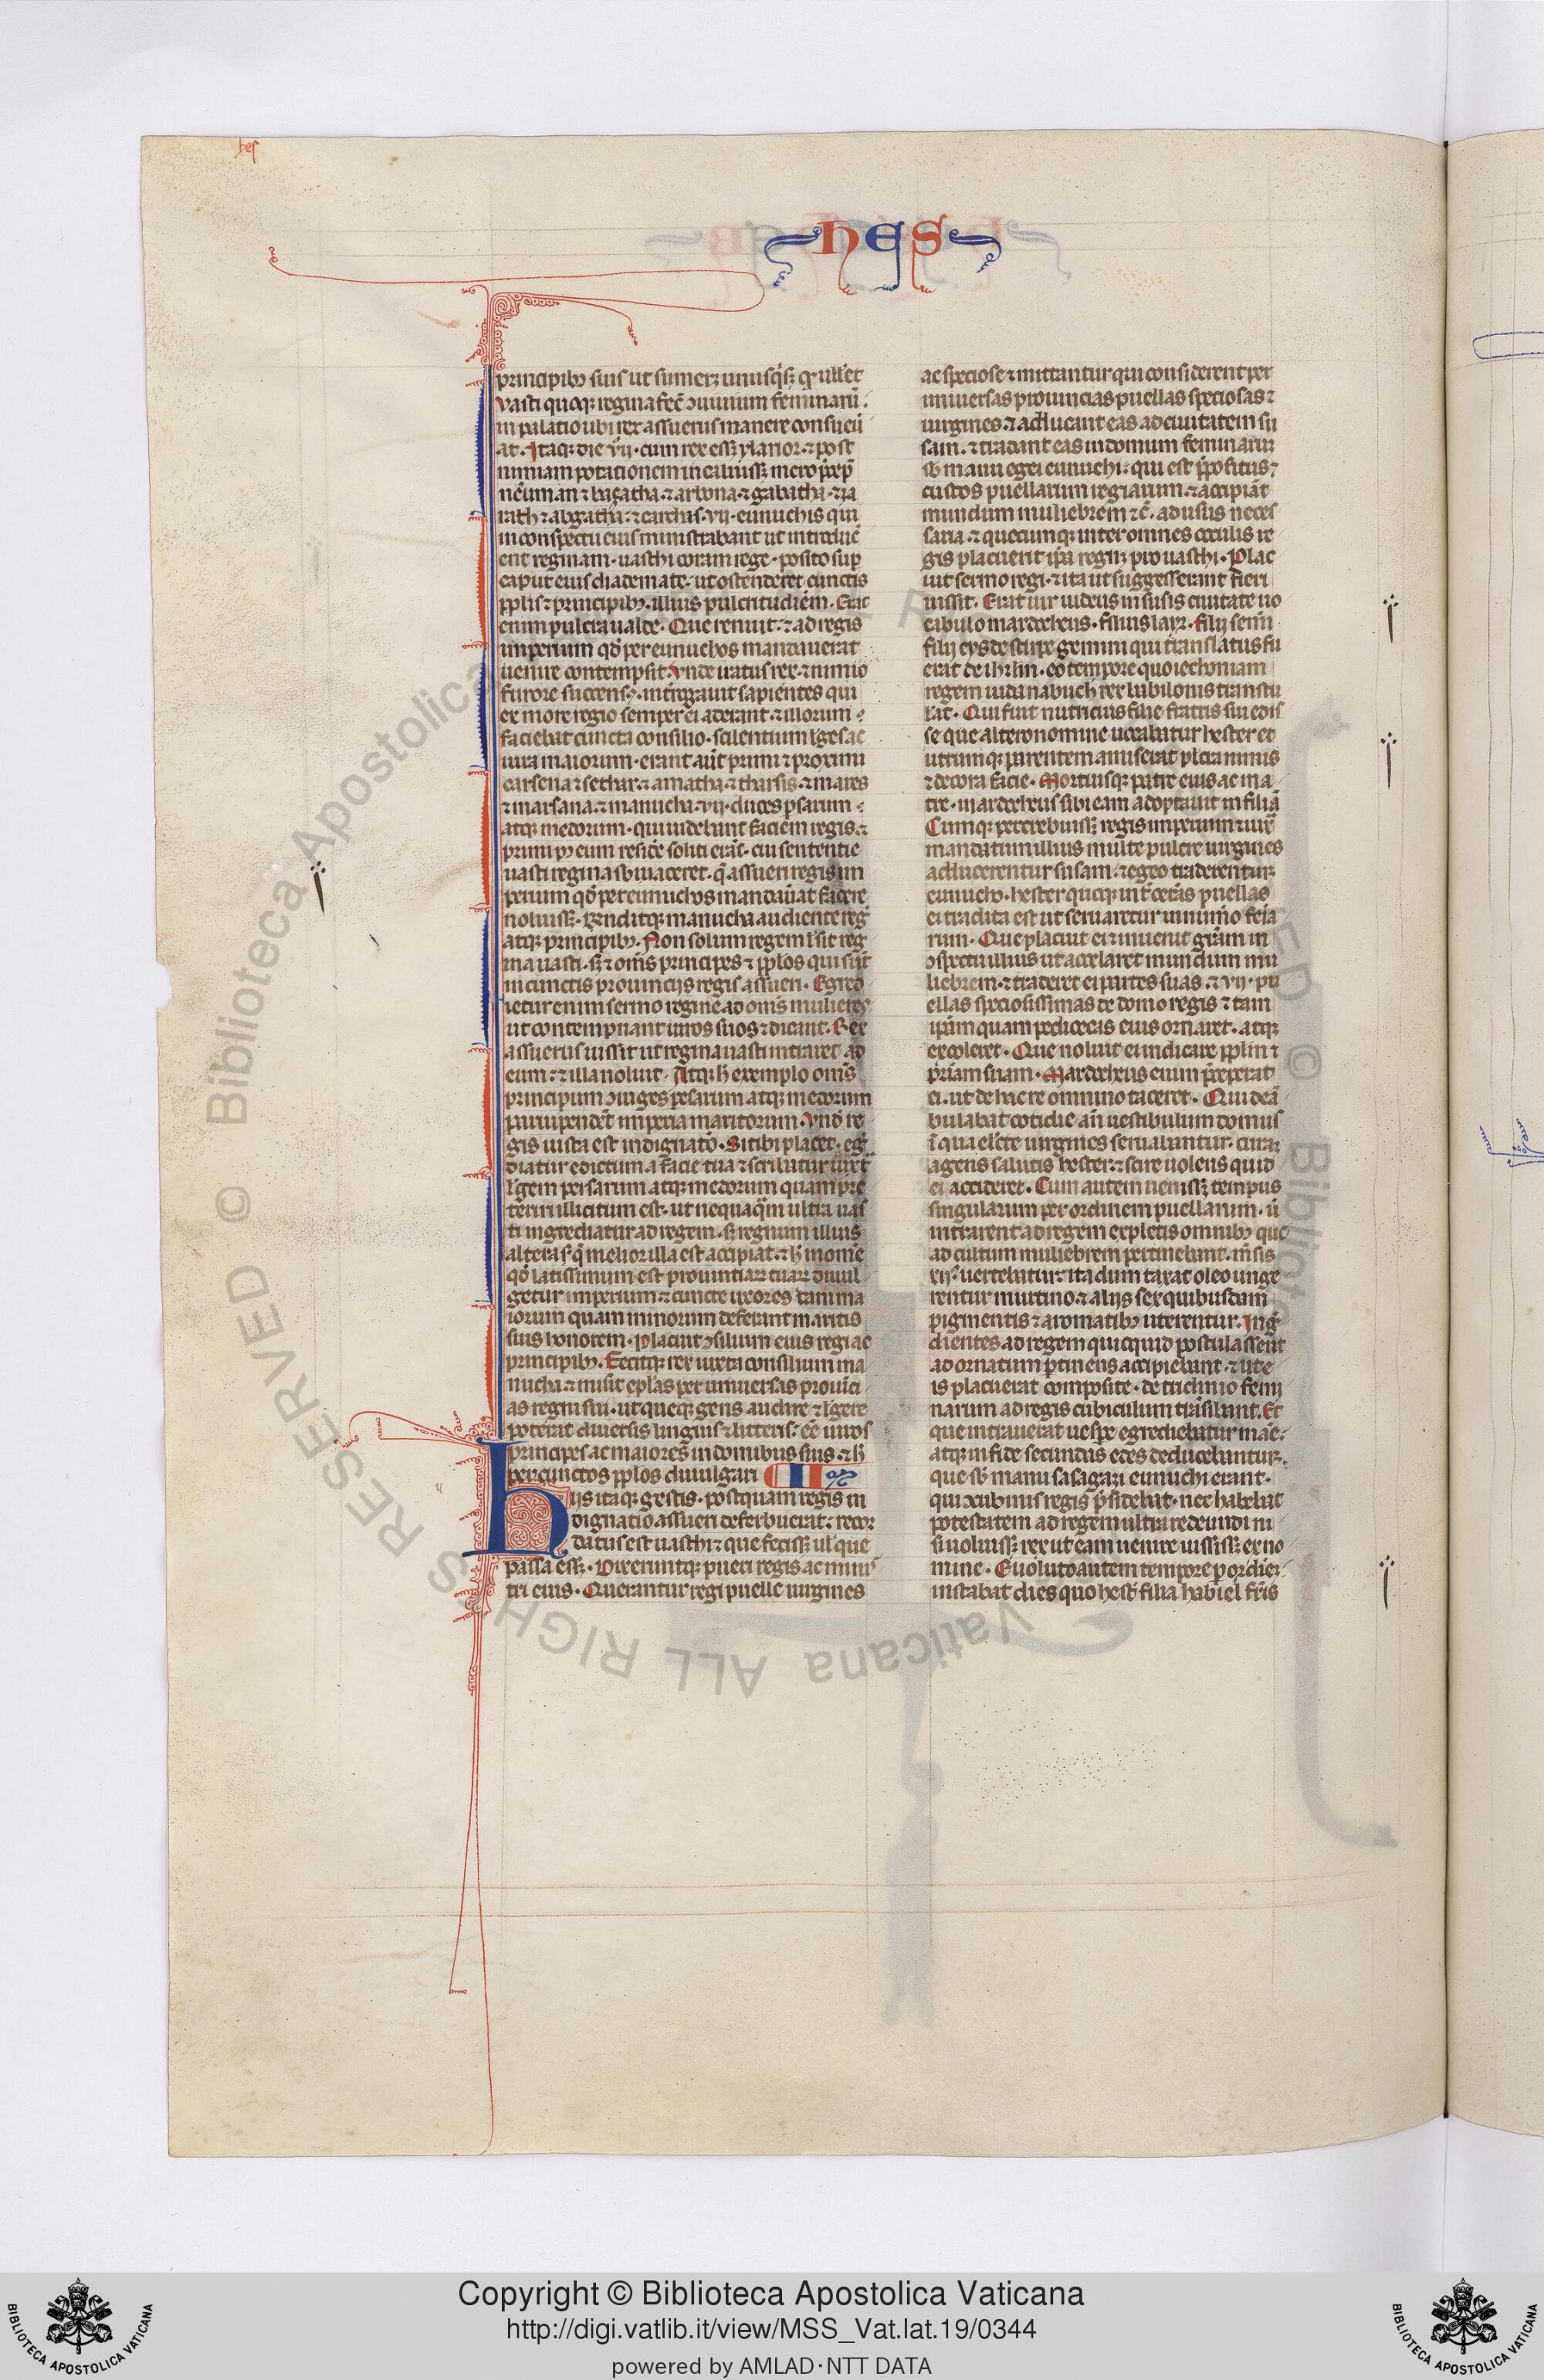 hes
HES
principibꝫ suis ut sumerꝫ unusqꝫsꝫ qđ uellet
vasti quoqꝫ regina fec̄ ɔuiuium feminarū.
in palatio ubi rex assuerus manere consueū
at. Itaqꝫ die vij. cum rex essꝫ ylarior ⁊ post
nimiam potationem incaluissꝫ mero p̄cep̄
neuman ⁊ bagatha ⁊ arbona ⁊ gabatha ⁊ za
rath ⁊ abgatha ⁊ carchas. vij. eunuchis qui
in conspectu eius ministrabant ut introduc̄
ent reginam. uasthi coram rege. posito sup̄
caput eius diademate. ut ostenderet cunctis
pp̄lis ⁊ principibꝫ. illius pulcritudiēm. Erat
enim pulcra ualde. Que renuit. ⁊ ad regis
imperium qđ per eunuchos mandauerat
uenire contempsit. Vnde iratus rex. ⁊ nimio
furore succensꝰ. int̄rogauit sapientes qui
ex more regio semper ei aderant. ⁊ illorum
faciebat cuncta consilio. scientium leges ac
iura maiorum. erant aūt primi ⁊ proximi
carsena ⁊ sethar. ⁊ amatha. ⁊ tharsis. ⁊ mares
⁊ marsana ⁊ manucha. vij. duces p̱sarum
atqꝫ medorum. qui uidebant faciem regis. ⁊
primi pꝰ eum residē soliti erāt. cui sententie
uasti regina sb̄iaceret. q̄ assueri regis im
perium qđ per eunuchos mandau̅at facere
noluissꝫ. Renditqꝫ manucha audiente reg̅
atqꝫ principibꝫ. Non solum regem lesit reg
ina uasti. sꝫ ⁊ om̅s principes ⁊ pp̄los qui sūt
in cunctis prouincijs regis assueri. Egred
ietur enim sermo regine ad om̅s mulieres
ut contempnant uiros suos ⁊ dicant. Rex
assuerus iussit ut regina uasti intraret ad
eum. ⁊ illa noluit. Atqꝫ h̅ exemplo om̅s
principum ɔiuges persarum atqꝫ medorum
paruipendēt imperia maritorum. Vnđ re
gis iusta est indignatō. Si tibi placet. eg̅
diatur edictum a facie tua ⁊ scribatur iuxt̄
legem persarum atqꝫ medorum quam pre
teriri illicitum est. ut nequaq̄m ultra uas
ti ingrediatur ad regem. sꝫ regnum illius
altera q̄ melior illa est accipiat. ⁊ h̅ in om̄e
qđ latissimum est prouintiarꝫ tuarꝫ diuul
getur imperium. ⁊ cuncte uxores tam ma
iorum quam minorum deferant maritis
suis honorem. Placuit ɔsilium eius regi ac
principibꝫ. Fecitqꝫ rex iuxta consilium ma
nucha ⁊ misit ep̄las per uniuersas prouīci
as regni sui. ut queqꝫ gens audire ⁊ legere
poterat diuersis linguis ⁊ litteris. ēē uiros
principes ac maiores in domibus suis. ⁊ h̅
per cunctos pp̄los diuulgari II
Hijs itaqꝫ gestis. postquam regis in
dignatio assueri deferbuerat. recor
datus est uasthi ⁊ que fecissꝫ ul̄ que
passa essꝫ. Dixeruntqꝫ pueri regis ac minis
tri eius. Querantur regi puelle uirgines
ac speciose ⁊ mittantur qui considerent per
uniuersas prouincias puellas speciosas ⁊
uirgines. ⁊ adducant eas ad ciuitatem su
sam. ⁊ tradant eas in domum feminarꝫ
sb̄ manu egei eunuchi. qui est p̄positus ⁊
custos puellarum regiarum. ⁊ accipiāt
mundum muliebrem ⁊ c̄. ad usus neces
saria. ⁊ quecunqꝫ inter omnes oculis re
gis placuerit ip̄a regnꝫ pro uasthi. Plac
uit sermo regi. ⁊ ita ut suggesserant fieri
iussit. Erat uir iudeus in susis ciuitate uo
cabulo mardocheus. filius iayr. filij semei
filij cys de stirpe gemini qui translatus fu
erat de ihrl̄m. eo tempore quo iechoniam
regem iuda nabuch rex babilonis transtu
lat. Qui fuit nutricius filie fratris sui edis
se que altero nomine uocabatur hester et
utrumqꝫ parentem amiserat pulcra nimis
⁊ decora facie. Mortuisqꝫ patre eius ac ma
tre. mardocheus sibi eam adoptauit in filiā
Cumqꝫ percrebuissꝫ regis imperium ⁊ iux̄
mandatum illius multe pulcre uirgines
adducerentur susam. ⁊ egeo traderentur
eunucho. hester quoqꝫ int̄ cet̄as puellas
ei tradita est ut seruaretur in numo feīa
rum. Que placuit ei ⁊ inuenit gr̄am in
ɔspectu illius ut accelaret mundum mu
liebrem. ⁊ traderet ei partes suas. ⁊ vij. pu
ellas speciosissimas de domo regis ⁊ tam
ip̄am quam pedissecas eius ornaret. atqꝫ
excoleret. Que noluit ei indicare pp̄lm ⁊
p̄riam suam. Mardocheus enim p̄ceperat
ei. ut de hac re omnino taceret. Qui deā
bulabat cotidie an̄ uestibulum domus
ī qua elēte uirgines seruabuntur. curā
agens salutis hester. ⁊ scire uolens quid
ei accideret. Cum autem uenissꝫ tempus
singularum per ordinem puellarum. ū
intrarent ad regem expletis omnibꝫ que
ad cultum muliebrem pertinebant. m̄sis
xijꝰ. uertebatur. ita dum taxat oleo unge
rentur mirtino. ⁊ alijs sex quibusdam
pigmentis ⁊ aromatibꝫ uterentur. Ing̅
dientes ad regem quicquid postulassent
ad ornatum ptinens accipiebant. ⁊ ut e
is placuerat composite. de triclinio femi
narum ad regis cubiculum transibant. Et
que intrauerat uesp̱e egrediebatur mane.
atqꝫ in fide secundas edes deducebantur.
que sb̄ manu sasagazi eunuchi erant.
qui ɔcubinis regis p̄sidebat. nec habebat
potestatem ad regem ultra redeundi ni
si uoluissꝫ rex ut eam uenire iussissꝫ ex no
mine. Euoluto autem tempore p̱ ordiē
instabat dies quo hest̄ filia habiel fr̄is
Copyright © Biblioteca Apostolica Vaticana
http://digi.vatlib.it/view/MSS_Vat.lat.19/0344
powered by AMLAD·NTT DATA
BIBLIOTECA APOSTOLICA VATICANA
BIBLIOTECA APOSTOLICA VATICANA
© Biblioteca Apostolica Vaticana ALL RIGHTS RESERVED